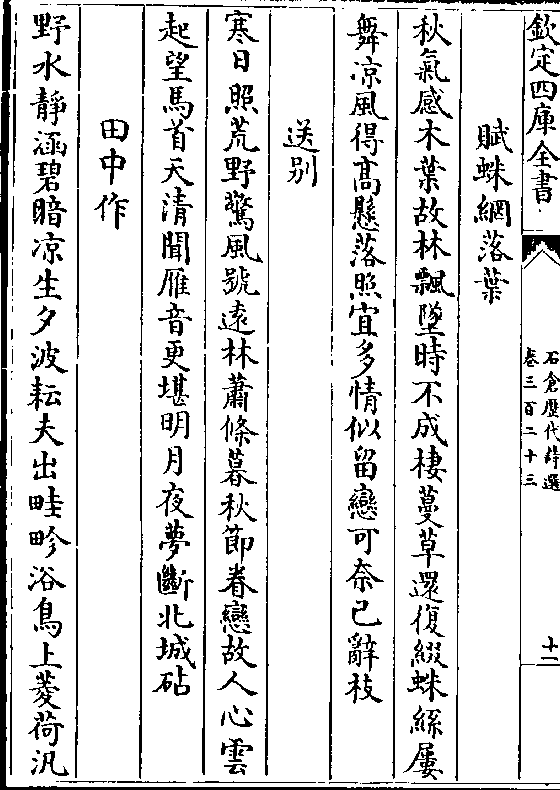 欽定四庫全書
石倉歷代詩選
卷三百二十三
十二
賦蛛網落葉
秋氣感木葉故林飄墜時不成棲蔓草還復綴蛛絲屢
舞凉風得高懸落照宜多情似留戀可奈已辭枝
送别
寒日照荒野驚風號遠林蕭條暮秋節眷戀故人心雲
起望馬首天清聞雁音更堪明月夜夢斷北城砧
田中作
野水靜涵碧暗凉生夕波耘夫出畦畛浴鳥上菱荷汎